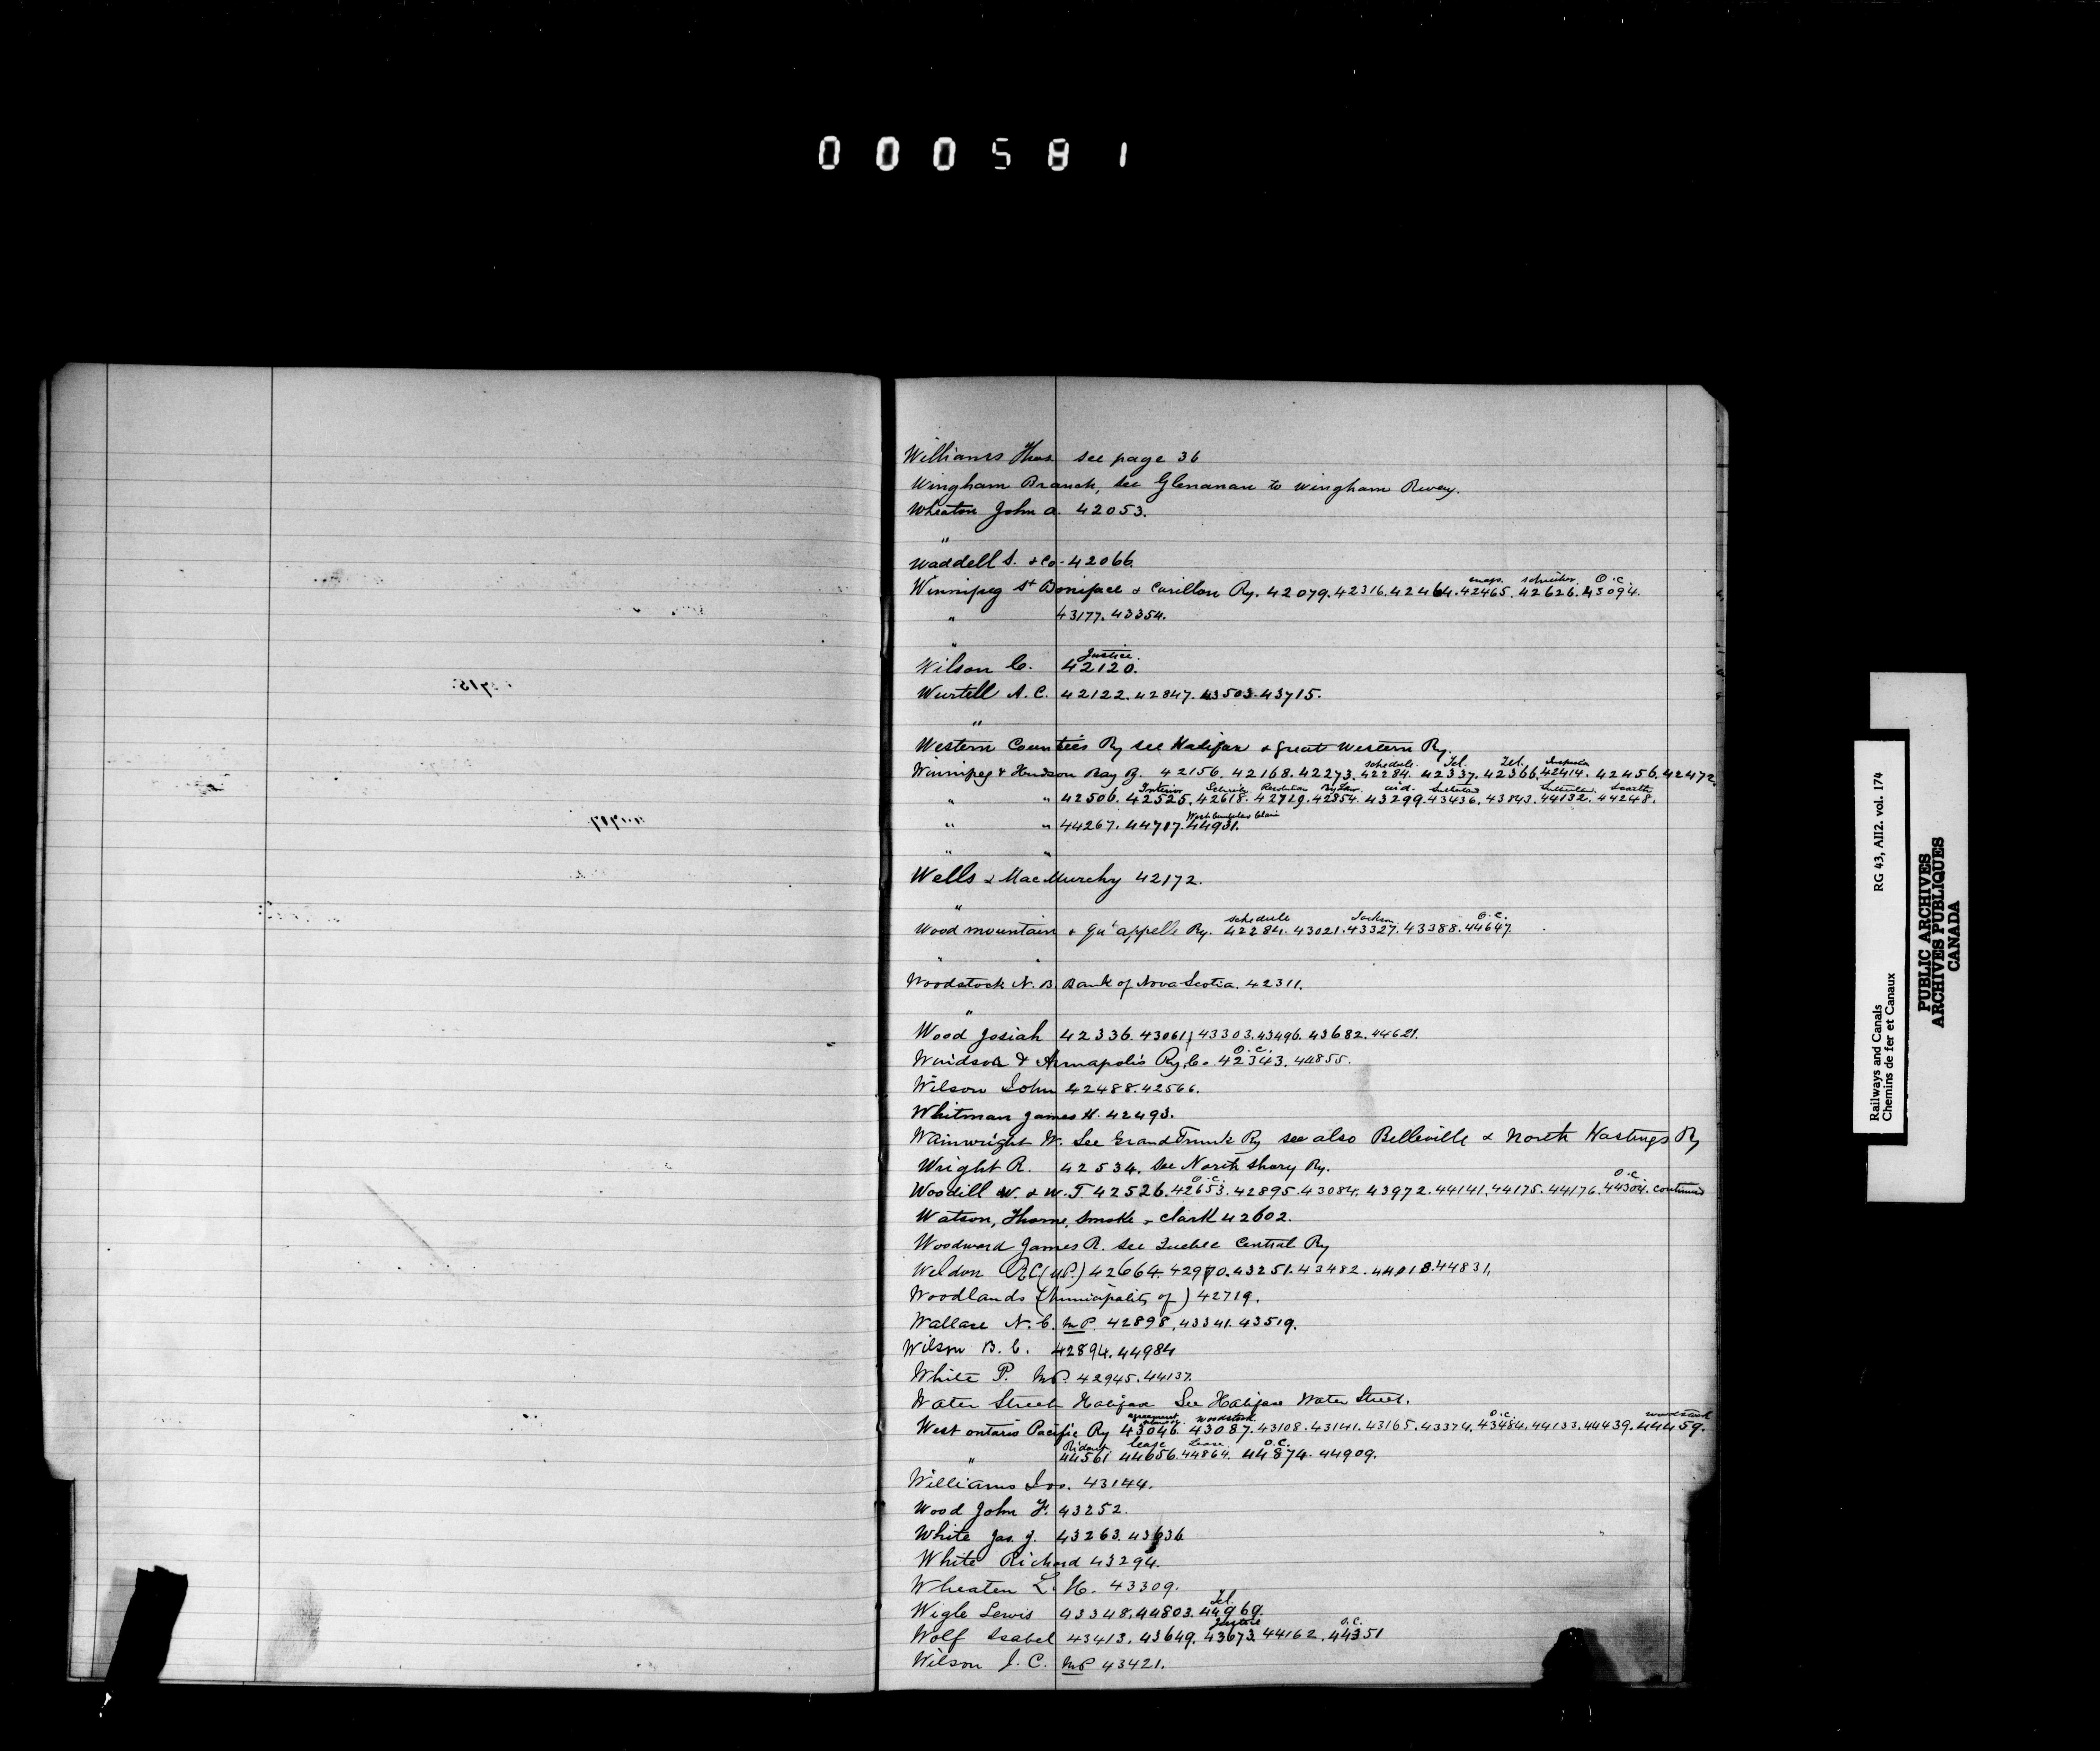 000581
Williams Thos. see page 36
Wingham Branch, see Glenanan to Wingham Rway.
Wheaton John A. 42053.
"
Waddell S. & Co. 42066
maps. schreiber. O.C.
Winnipeg St Boniface & Carillon Ry. 42079. 42316. 42464. 42465. 42626. 43094.
" 43177. 43354.
"
Justice.
Wilson C. 42120.
Wurtell A. C. 42122. 42847. 43503. 43715.
"
Western Counties Ry see Halifax & Great Western Ry.
schedule. Tel. Tel.
Winnipeg & Hudson Bay Ry. 42156. 42168. 42273. 42284. 42337. 42366. 42414. 42456. 42472
Interior. Schreib. Resolution By Law. aid.
" " 42506. 42525. 42618. 42729. 42854. 43299. 43436. 43843. 44132. 44248.
" " 44267. 44717. 44931.
" "
Wells & MacMurchy 42172.
"
schedule Jackson. O.C.
Wood mountain & Qu'appelle Ry. 42284. 43021. 43327. 43388. 44647.
"
Woodstock N. B. Bank of Nova Scotia. 42311.
"
Wood Josiah 42336. 43061, 43303. 43496. 43682. 44621.
O. C.
Windsor & Annapolis Ry. Co. 42343. 44855.
Wilson John 42488. 42566.
Whitman James H. 42493.
Wainwright W. See Grand Trunk Ry see also Belleville & North Hastings Ry
Wright R. 42534. See North Shory Ry.
O.C. O.C.
Woodill W. & W. T 42526. 42653. 42895. 43084. 43972. 44141. 44175. 44176. 44304. continued
Watson, Thorne, Smoke & Clark 42602.
Woodward James R. see Quebec Central Ry
Weldon (M.P.) 42664. 42970. 43251. 43482. 44018. 44831.
Woodlands (Municipality of) 42719.
Wallace N. C. M.P. 42898, 43341. 43519.
Wilson B. C. 42894. 44984
White P. M.P. 42945. 44137.
Water Street Halifax See Halifax Water Street.
agreement woodstock. O.C. woodstock
West Ontario Pacific Ry 43046. 43087. 43108. 43141. 43165. 43374. 43484. 44133. 44439. 44459.
Ridout. lease Lease. O.C.
" 44561 44656. 44864. 44874. 44909.
Williams Jos. 43144.
Wood John F. 43252.
White Jas. J. 43263. 43636
White Richard 43294.
Wheaten L. H. 43309.
Tel.
Wigle Lewis 43348. 44803. 44969.
Justice O.C.
Wolf Isabel 43413. 43649. 43673. 44162. 44351
Wilson J. C. M.P. 43421.
Railways and Canals RG 43, AII2. vol. 174
Chemins de fer et Canaux
PUBLIC ARCHIVES
ARCHIVES PUBLIQUES
CANADA